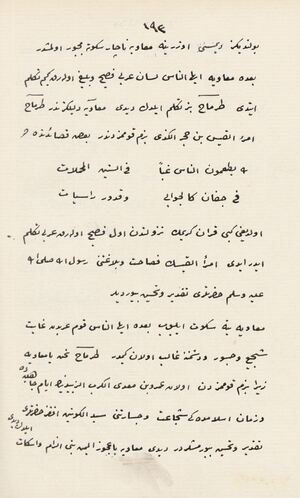 ١٩٣
بولنديكز ديمسى اوزرينه معاويه ناچار سكوته مجبور اولمشدر
بعده معاويه ايها الناس لسان عربى فصيح وبليغ اولهرق كيم تكلم
ايتدى طرماح بز تكلم ايلدك ديدى معاويه دليلكز نه در طرماح
امرأ القيس بن حجر الكندى بزم قومزدندر بعض قصائدنده
يطعمون الناس غبا فى السنين الممحلات
فى جفان كالجوابى وقدور راسيات
اولديغى كبى قرآن كريمك نزولندن اول فصيح اولهرق عربى تكلم
ايدر ايدى امرأ القيسك فصاحت وبلاغتنى رسول الله صلى الله
عليه وسلم حضرتلرى تقدير وتحسين بيورديلر
معاويه ينه سكوت ايليوب بعده ايها الناس قوم عربدن غايت
شجيع وجسور ودشمنه غالب اولان كيمدر طرماح نحن يا معاويه
زيرا بزم قومزدن اولان عمرو بن معدى الكرب الزبيدى ايام جاهليه ده
وزمان اسلامده كى شجاعت وجسارتنى سيد الكونين افندمز حضرتلرى
تقدير وتحسين بيورمشلردر ديدى معاويه يا عجوز اليمن بنى الزام واسكات
ايلدك ديدى